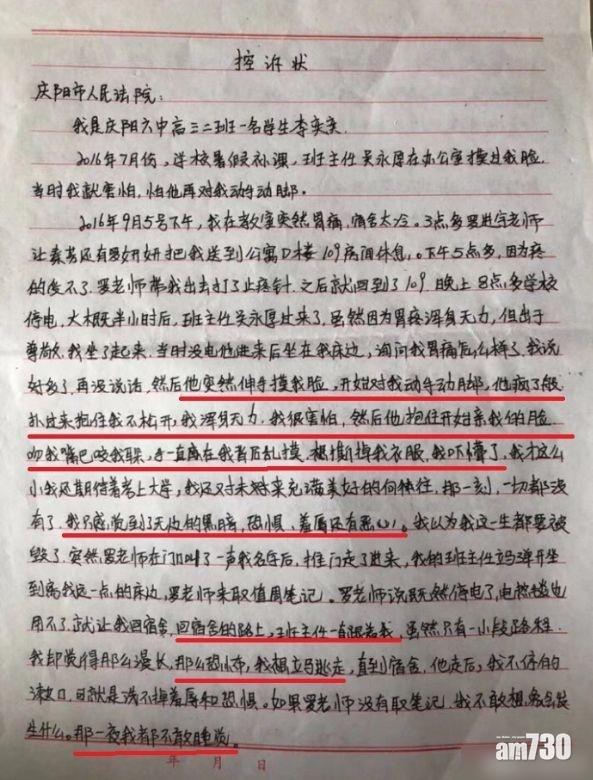 控诉状
庆阳市人民法院：
我是庆阳六中高三二班一名学生李奕奕
2016年7月份，学校暑假补课，班主任吴永厚在办公室摸过我脸
当时我就害怕，怕他再对我动手动脚。
2016年9月5号下午，我在教室突然胃痛，宿舍太冷。3点多罗进宇老师
让秦茜还有罗妍妍把我送到公寓D楼109房间休息。下午5点多，因为疼
的受不了，罗老师带我出去打了止疼针 之后就回到了109 晚上8点多学校
停电，大概半小时后，班主任吴永厚过来了，虽然因为胃疼浑身无力，但出于
尊敬，我坐了起来，当时没电他进来后坐在我床边，询问我胃痛怎么样了，我说
好多了，再没说话，然后他突然伸手摸我脸，开始对我动手动脚，他疯了般
扑过来抱住我不松开，我浑身无力，我很害怕，然后他抱住开始亲我的脸
吻我嘴巴咬我耳朵，手一直在我背后乱摸，想撕掉我衣服，我吓懵了，我才这么
小我还期待着考上大学，我还对未来充满美好的向往，那一刻，一切都没
有了，我只感觉到了无边的黑暗，恐惧，羞辱还有恶心。我以为我这一生都要被
毁了，突然罗老师在门口叫了一声我名字后，推门走了进来，我的班主任立马弹开坐
到离我远一点的床边，罗老师来取值周笔记。罗老师说既然停电了，电热毯也
用不了，就让我回宿舍，回宿舍的路上，班主任一直跟着我，虽然只有一小段路程
我却觉得那么漫长，那么恐怖，我想立马逃走，直到宿舍，他走后，我不停的
漱口，可就是洗不掉羞辱和恐惧。如果罗老师没有取笔记，我不敢想，我会发
生什么。那一夜我都不敢睡觉。
年 月 日
am730